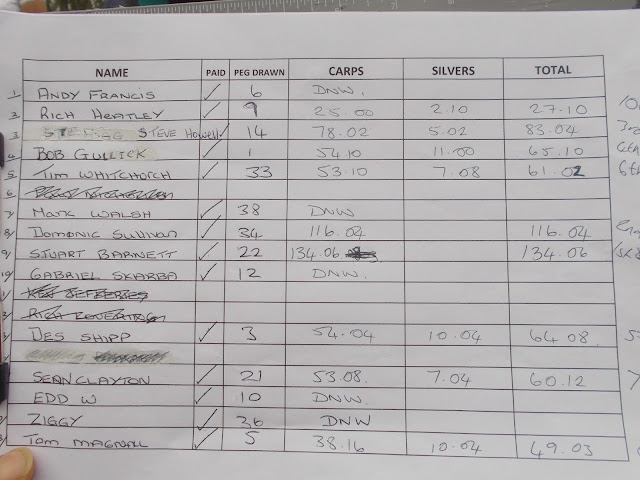 NAME PAID PEG DRAWN CARPS SILVERS TOTAL
1 ANDY FRANCIS ✓ 6 DNW.
2 RICH HEATLEY ✓ 9 25.00 2.10 27.10
3 STEVE Howell ✓ 14 78.02 5.02 83.04
4 BOB GULLICK ✓ 1 54.10 11.00 65.10
5 TIM WHITCHOTCH ✓ 33 53.10 7.08 61.02
6
7 MARK WALSH ✓ 38 DNW
8 DOMONIC SULLIVAN ✓ 34 116.04 116.04
9 STUART BARNETT ✓ 22 134.06 134.06
10 GABRIEL SKARBA ✓ 12 DNW.
KEN JEFFERIES
DES SHIPP ✓ 3 54.04 10.04 64.08
SEAN CLAYTON ✓ 21 53.08. 7.04 60.12
EDD W ✓ 10 DNW.
ZIGGY ✓ 36 DNW
TOM MAGNALL ✓ 5 38.16 10.04 49.03